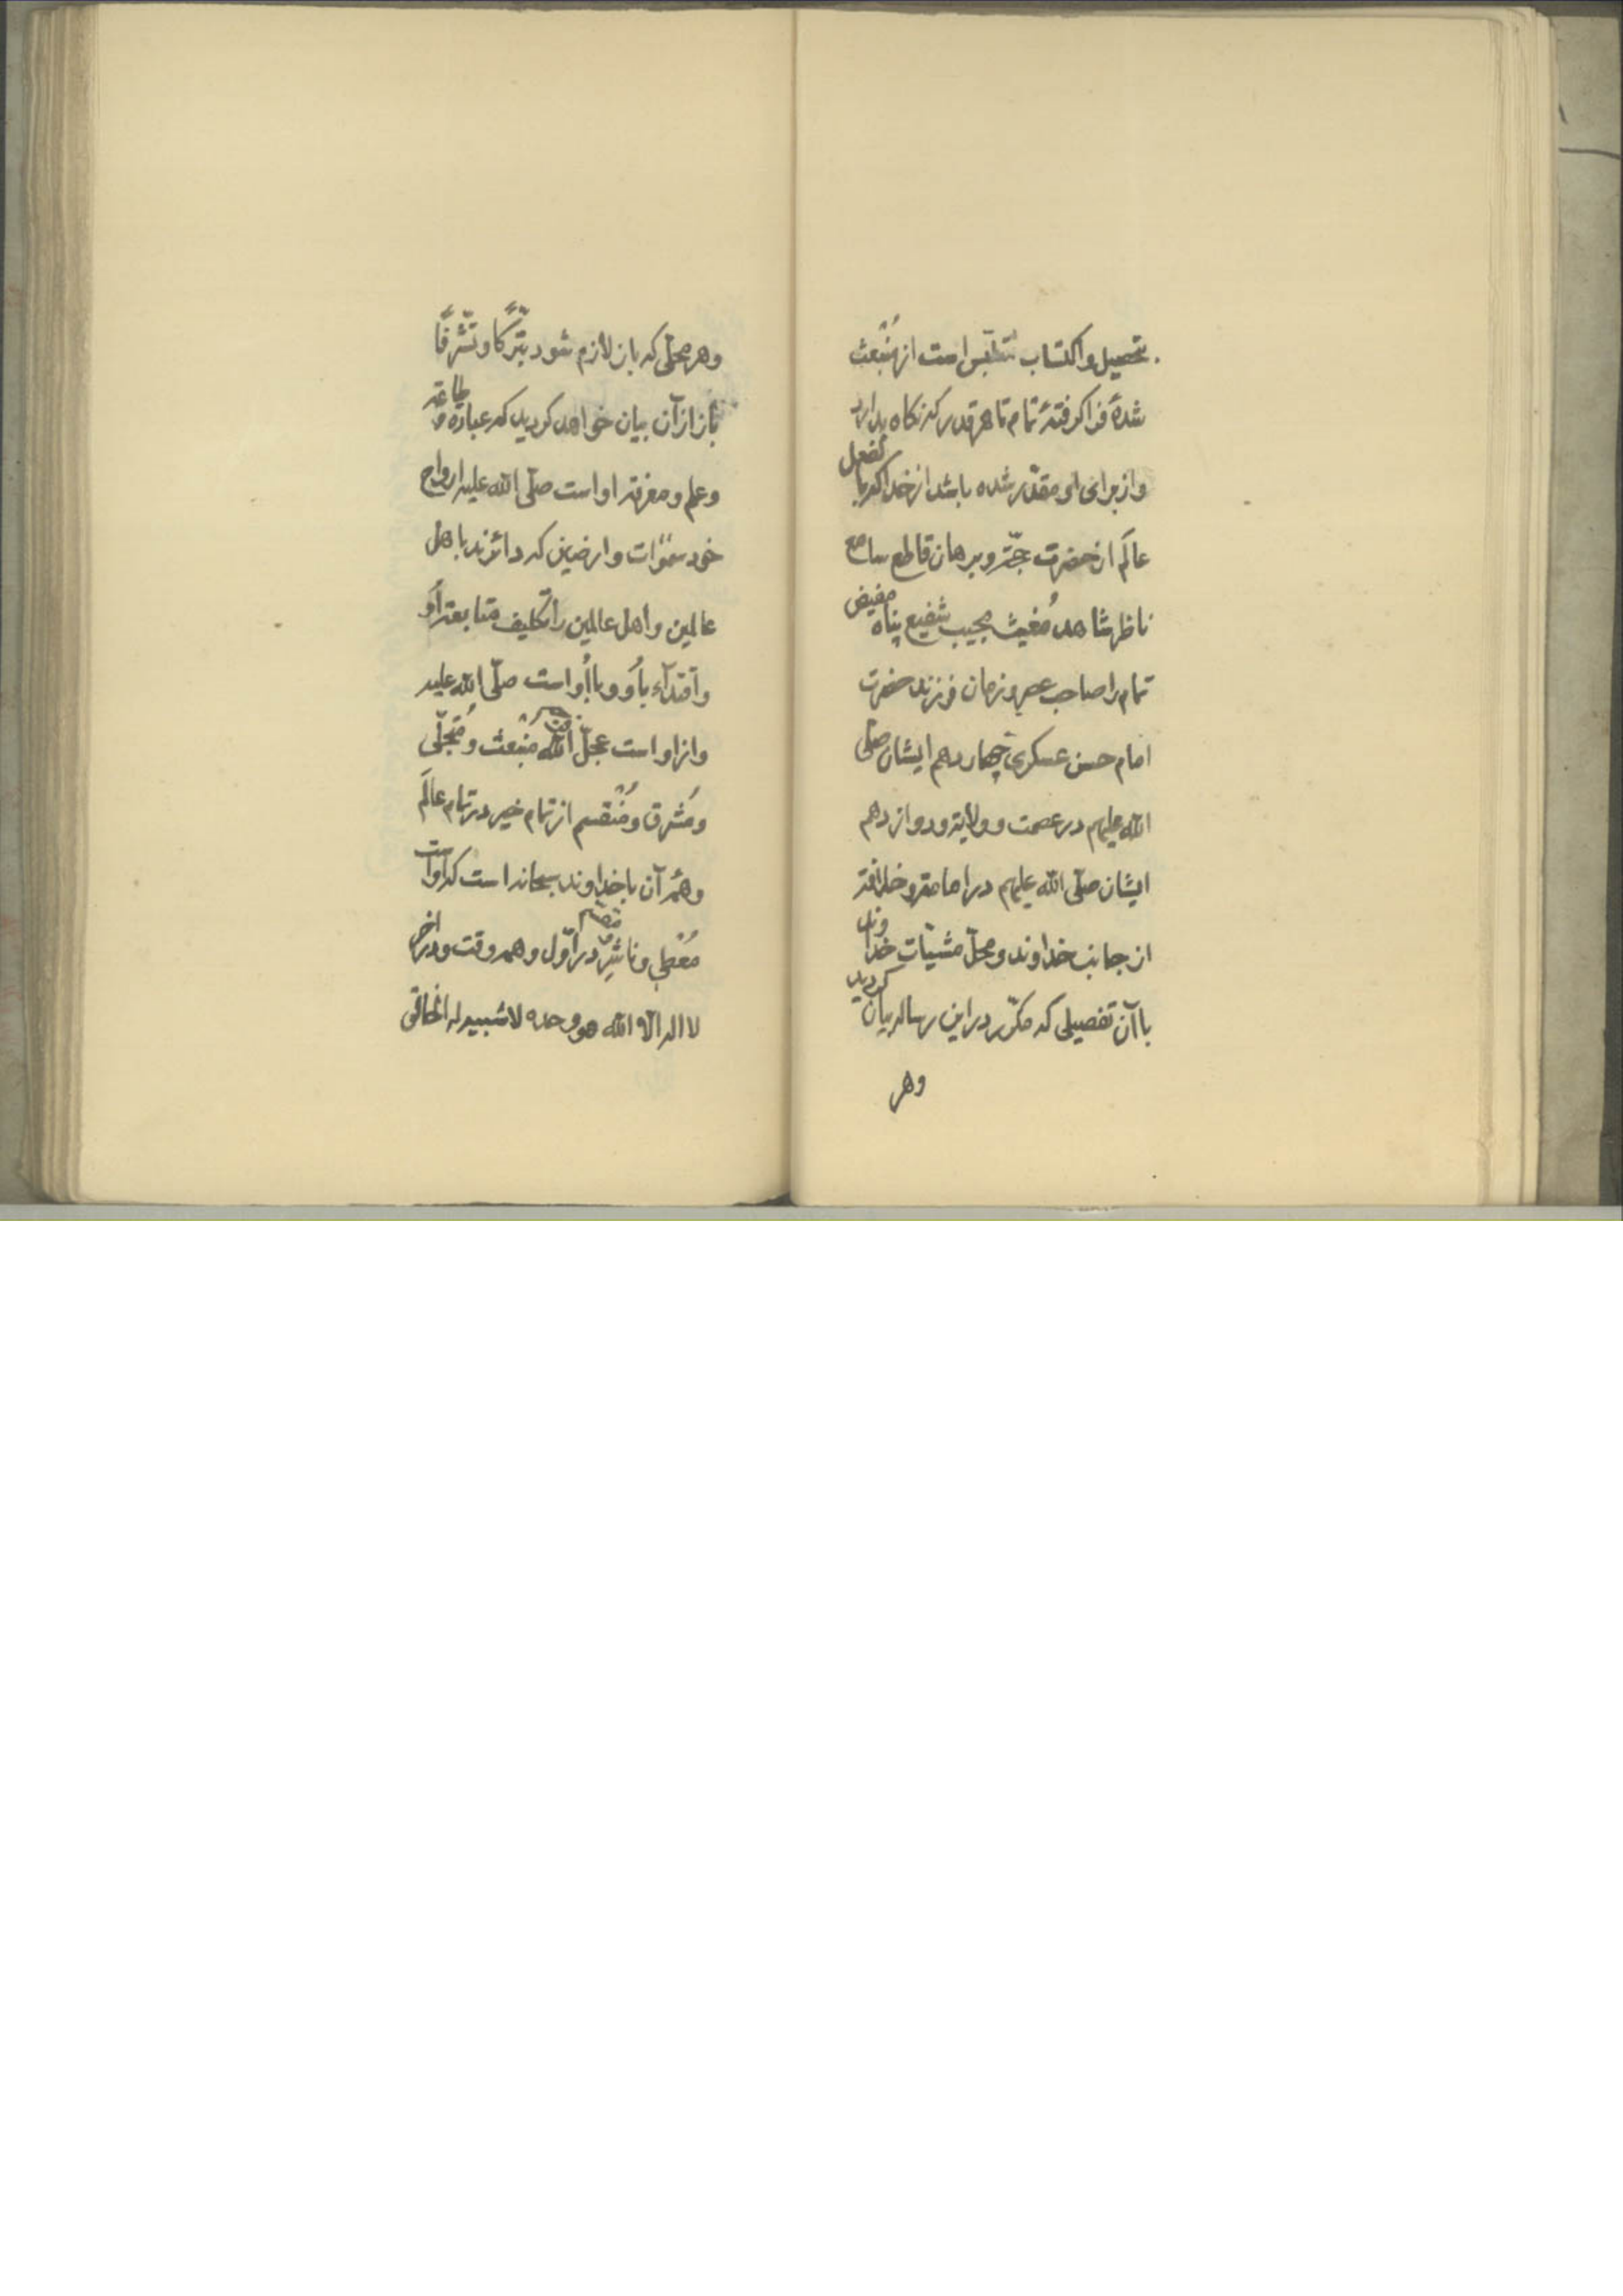 بتحصیل و اکتساب مقتبس است از مُنْبَعث
شدهٔ فرا گرفتهٔ تمام تا هر قدر که نگاه بدارد
و از برای او مقدّر شده باشد از خدا که با لفعل
عالَم از حضرت حجّة و برهان قاطع سامع
ناظر شاهد مُغیث مجیب شفیع پناه مفیض
تمام را صاحب عصر و زمان فرزند حضرت
امام حسن عسکری چهاردهم ایشان صلّی
الله علیهم در عصمت و ولایة و دوازدهم
ایشان صلّی الله علیهم در امامة و خلافة
از جانب خداوند و محلّ مشیّات خداوند
با آن تفصیلی که مکرّر در این رساله بیان کردید
وهر
وهر محلّی که باز لازم شود تبرّکًا و تشرّفًا
باز از آن بیان خواهد کردید که عبادة و طاعة
و علم و معرفة او است صلّی الله علیه ارواح
خود سموات و ارضین که دائرند با هل
عالمین و اهل عالمین را تکلیف متابعة اَو
و اقتدآء باَو و با اُو است صلّی الله علیه
و از او است عجلّ الله فرجه مُنْبَعث و مُتجلّی
و مُشرق و مُنْقسم از تمام خیر در تمام عالَم
و همهٔ آن با خداوند سبحانه است که او است
مُعْطی و ناشِر در اوّل و همه وقت و در اخر
لا اله الّا الله هو وحده لا شبیه له الخالق